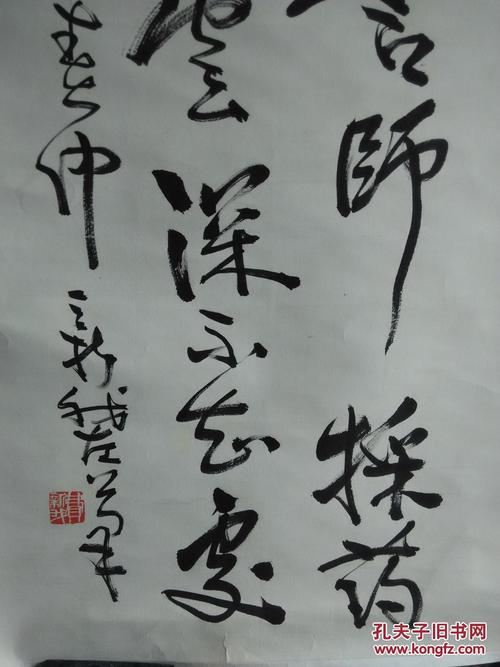 言師採药
雲深不知處
春仲
新我左筆
孔夫子旧书网
www.kongfz.com